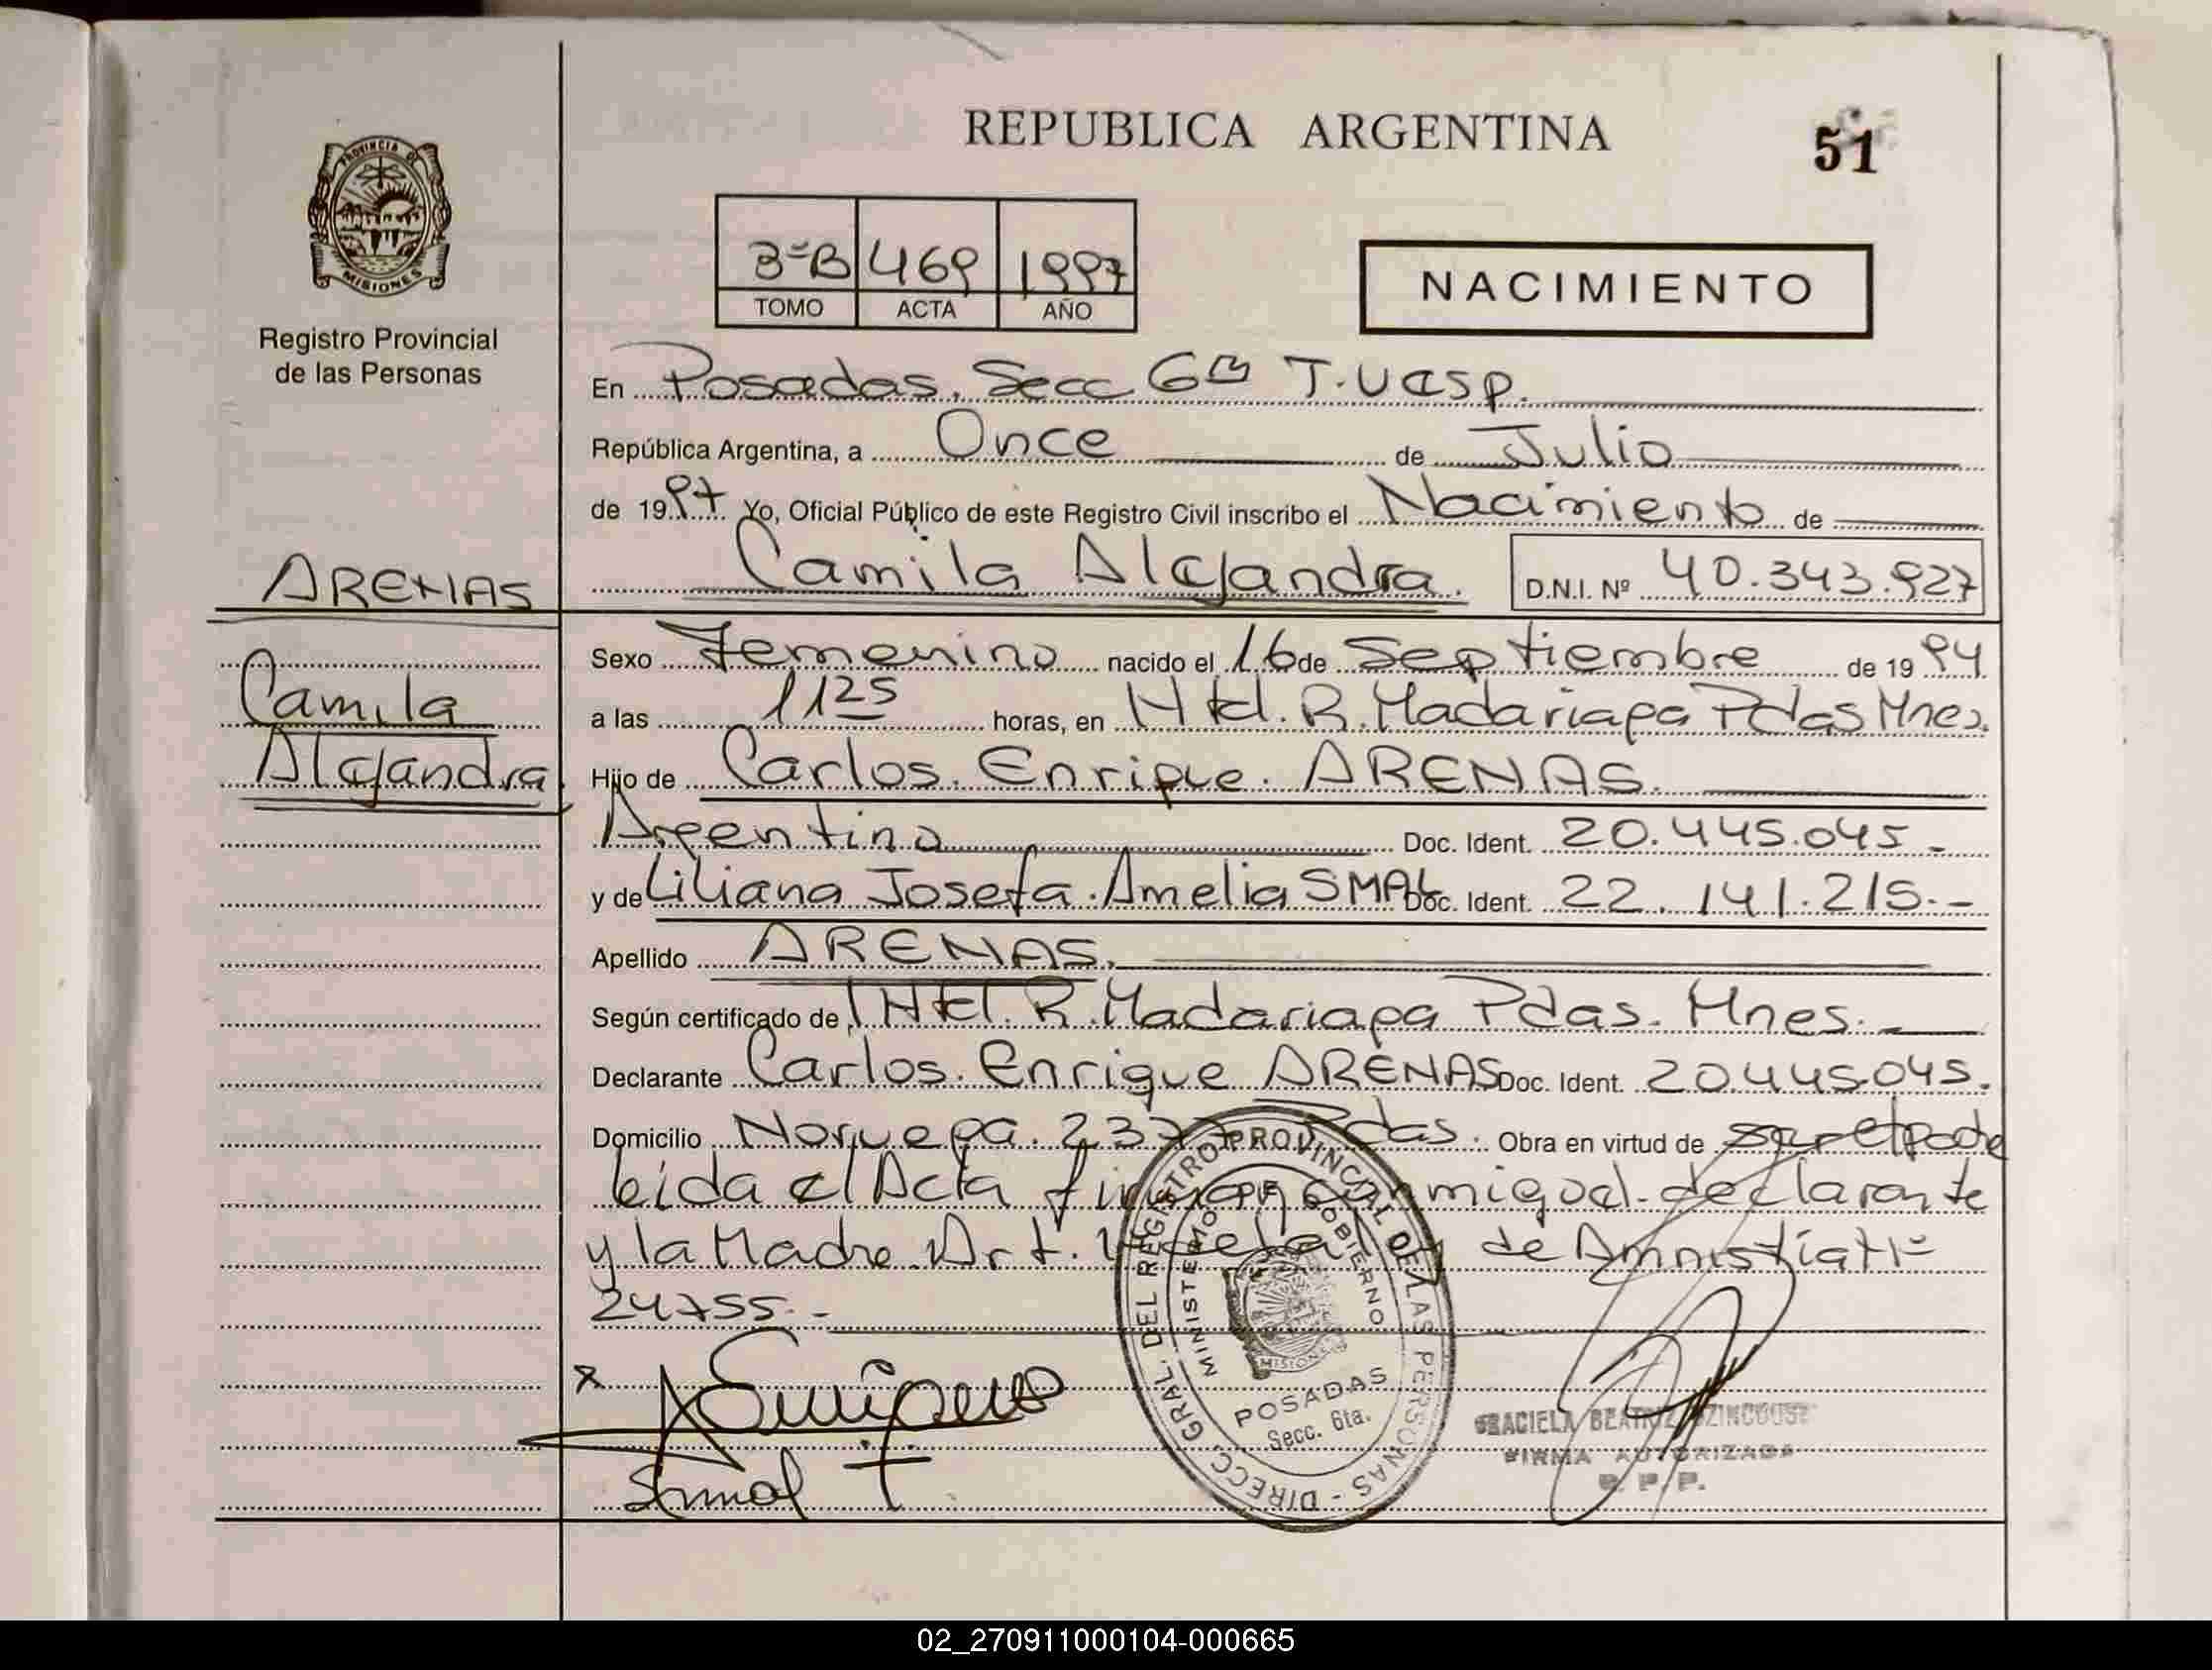 REPUBLICA ARGENTINA
51
PROVINCIA DE
MISIONES
Registro Provincial
de las Personas
3ºB 469 1997
TOMO ACTA AÑO
NACIMIENTO
En Posadas, Secc 6ta T. Vesp.
República Argentina, a Once de Julio
de 1997 Yo, Oficial Público de este Registro Civil inscribo el Nacimiento de
Camila Alejandra. D.N.I. Nº 40.343.927
ARENAS
Camila
Alejandra
Sexo Femenino nacido el 16 de Septiembre de 1994
a las 1125 horas, en Htel. R. Madariaga Pdas Mnes.
Hijo de Carlos. Enrique. ARENAS.
Argentino Doc. Ident. 20.445.045-
y de Liliana Josefa. Amelia SMAL Doc. Ident. 22.141.215.-
Apellido ARENAS.
Según certificado de Htel. R. Madariaga Pdas. Mnes.
Declarante Carlos. Enrique ARENAS Doc. Ident. 20445045.
Domicilio Noruega. Pdas. Obra en virtud de
el Acta conmigo el declarante
y la Madre. Art. de Amnistia Nº
24755.-
x
Smal
DIRECC. GRAL. DEL REGISTRO PROVINCIAL DE LAS PERSONAS -
MINISTERIO DE GOBIERNO
MISIONES
POSADAS
Secc. 6ta.
GRACIELA BEATRIZ
FIRMA AUTORIZADA
R. P. P.
02_270911000104-000665